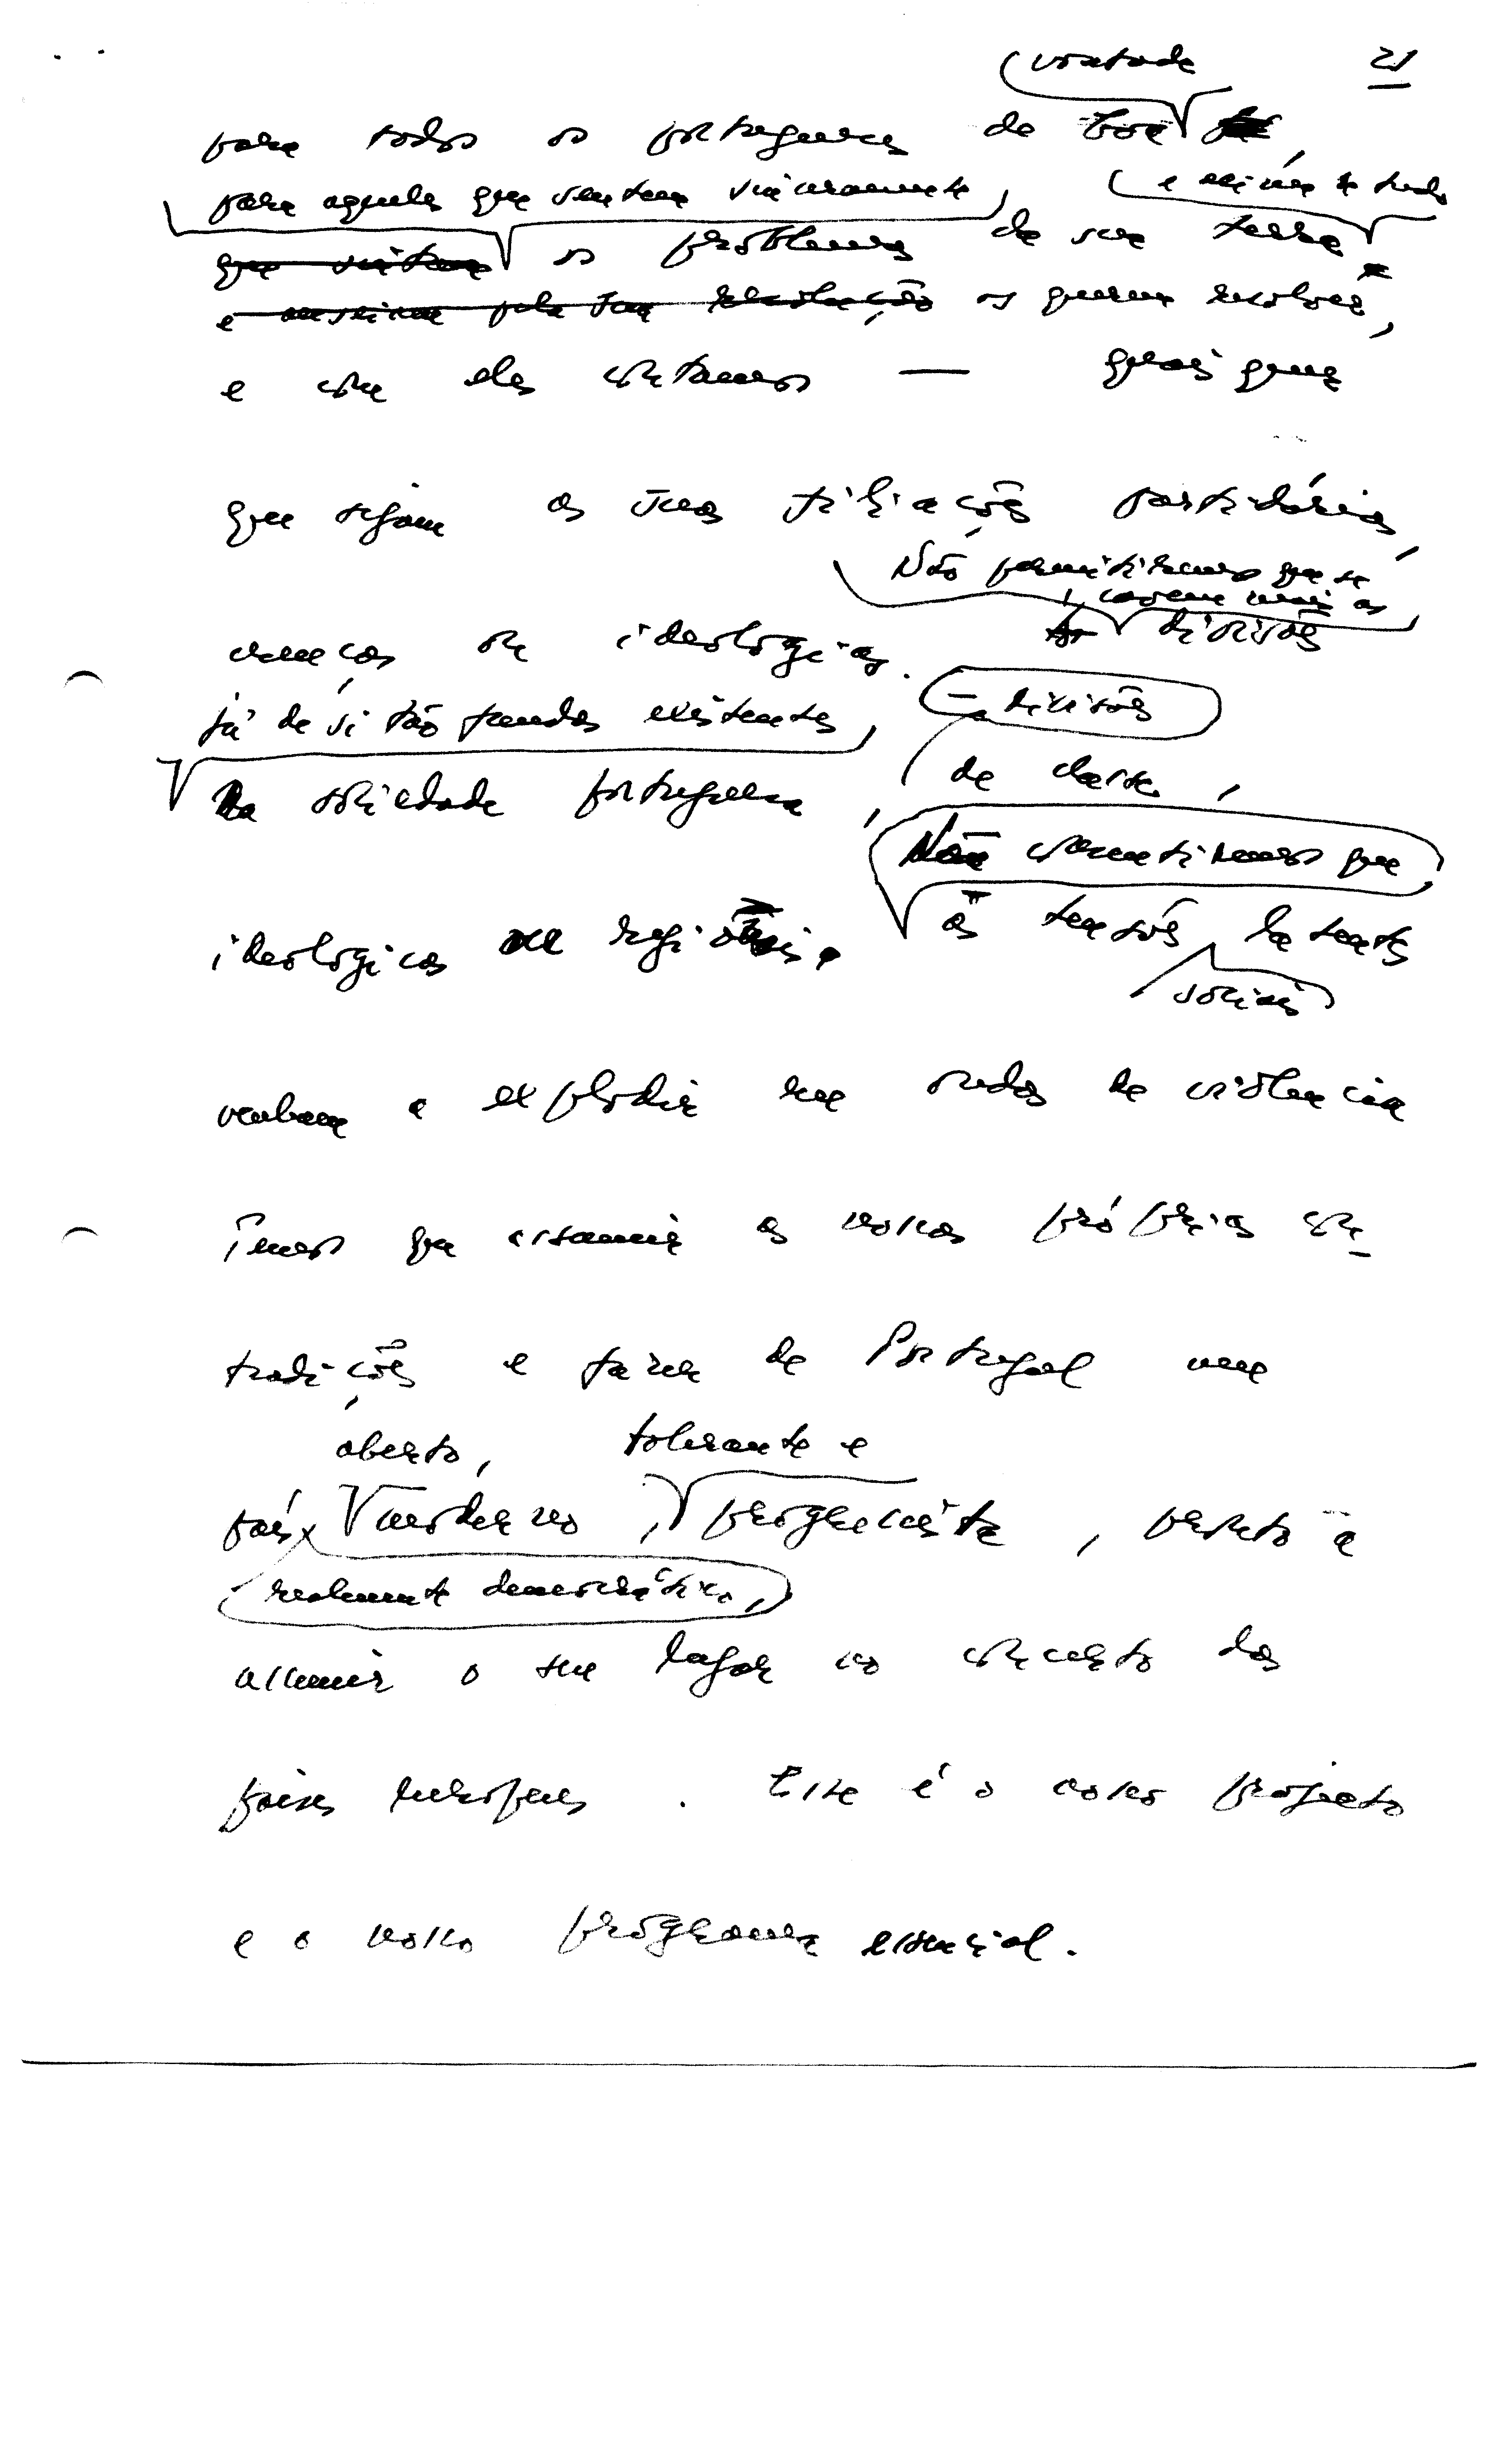 vontade 21
para todos os portugueses de boa
para aqueles que sentem sinceramente e acima de tudo
que sintam os problemas da sua terra
e anseiam pela sua resolução os querem resolver,
e com eles contamos — quaisquer
que sejam as suas filiações partidárias,
Não permitiremos que se
cavem mais as
crenças ou ideologias. divisões
já de si tão fundas existentes, – divisões
na sociedade portuguesa, de classe,
Não consentiremos que
ideologicas ou regionais. as tensões latentes
sociais
venham a explodir em ondas de violencia
Temos que assumir as nossas próprias con-
tradições e fazer de Portugal um
aberto, tolerante e
país moderno, progressista, pronto a
realmente democrático,
assumir o seu lugar no concerto dos
países europeus. Esse é o nosso projecto
e o nosso programa essencial.